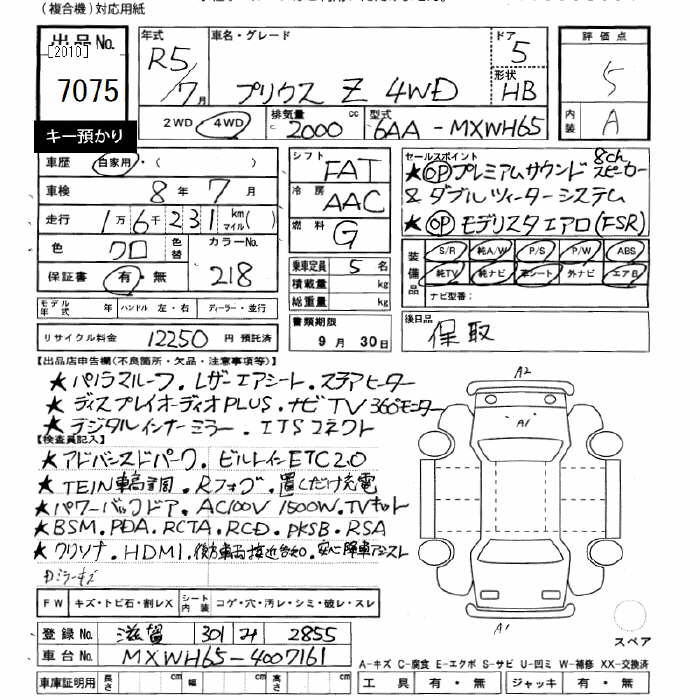 (複合機)対応用紙
出品No. 年式 車名・グレード ドア 評価点
[2010] R5/7月 プリウス Z 4WD 5 5
7075 形状 HB
キー預かり 2WD 4WD 排気量 2000 cc 型式 6AA-MXWH65 内装 A
車歴 自家用・( )
車検 8年 7月
走行 1万6千231 km マイル( )
色 クロ 色替 カラーNo. 218
保証書 有・無
モデル年式 年 ハンドル 左・右 ディーラー・並行
リサイクル料金 12250 円 預託済
シフト FAT
冷房 AAC
燃料 G
乗車定員 5 名
積載量 kg
総重量 kg
書類期限
9月30日
セールスポイント
★OPプレミアムサウンド 8chスピーカー
& ダブルツィーターシステム
★OP モデリスタエアロ(FSR)
装備品 S/R 純A/W P/S P/W ABS
純TV 純ナビ 革シート 外ナビ エアB
ナビ型番:
後日品
保取
【出品店申告欄(不良箇所・欠品・注意事項等)】
★パノラマルーフ.レザーエアシート.ステアヒーター
★ディスプレイオーディオPLUS.ナビTV 360°モニター
★デジタルインナーミラー.ITSコネクト
【検査員記入】
★アドバンスドパーク.ビルトインETC2.0
★TEIN車高調.Rフォグ.置くだけ充電
★パワーバックドア.AC100V 1500W.TVキット
★BSM.PDA.RCTA.RCD.PKSB.RSA
★クリソナ.HDMI.後方車両接近告知.安心降車アシスト
ミラーキズ
A2
A1
A1
スペア
FW キズ・トビ石・割レX シート内装 コゲ・穴・汚レ・シミ・破レ・スレ
登録No. 滋賀 301 2855
車台No. MXWH65-4007161
車庫証明用 長さ cm 幅 cm 高さ cm
A-キズ C-腐食 E-エクボ S-サビ U-凹ミ W-補修 XX-交換済
工具 有・無 ジャッキ 有・無